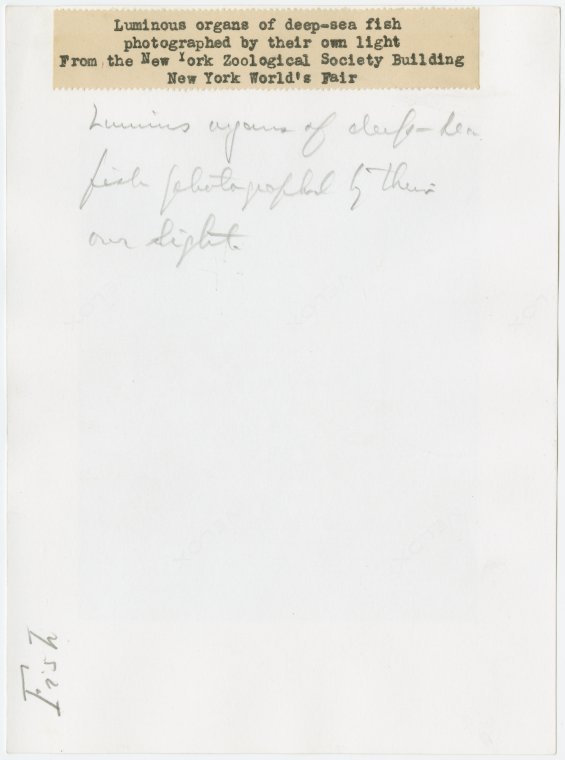 Luminous organs of deep=sea fish
photographed by their own light
From the New York Zoological Society Building
New York World's Fair
Luminus organs of deep-sea
fish photographed by their
own light.
Fish
VELOX
VELOX